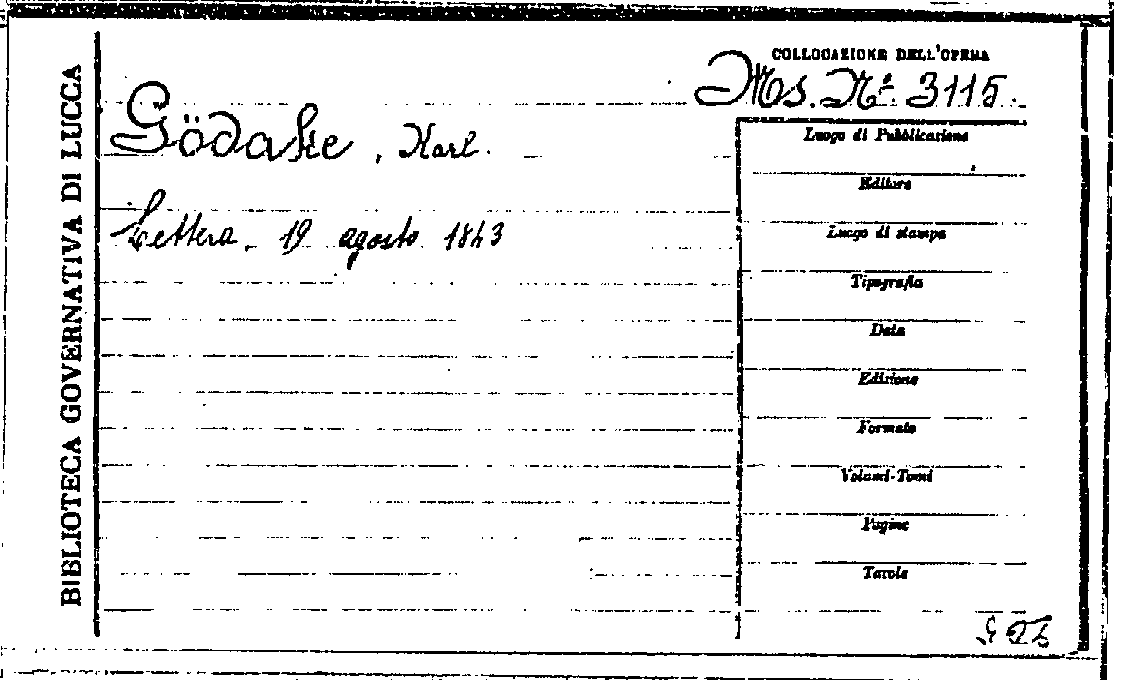 BIBLIOTECA GOVERNATIVA DI LUCCA
COLLOCAZIONE DELL'OPERA
Ms. Nº. 3115.
Gödake, Karl.
Lettera, 19 agosto 1843
Luogo di Pubblicazione
Editore
Luogo di stampa
Tipografia
Data
Edizione
Formato
Volumi-Tomi
Pagine
Tavole